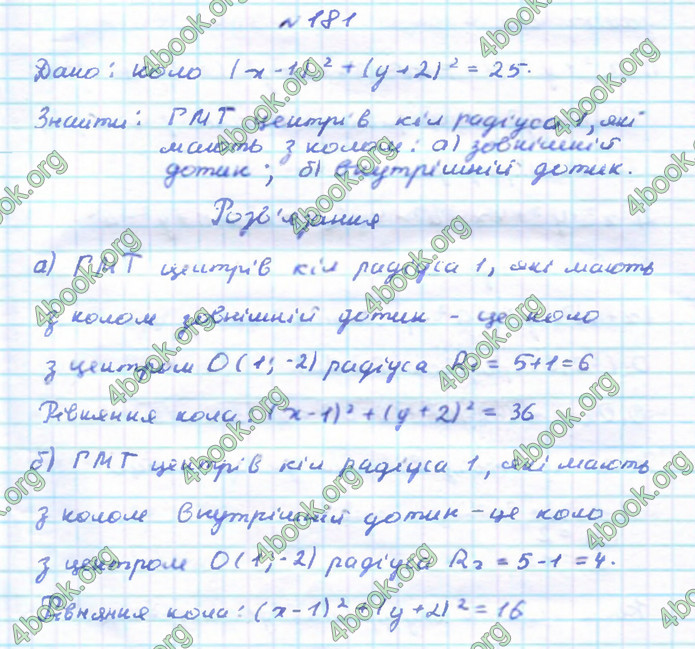 № 181
Дано: коло (x-1)² + (y+2)² = 25.
Знайти: ГМТ центрів кіл радіуса 1, які
мають з колом: а) зовнішній
дотик; б) внутрішній дотик.
Розв'язання
а) ГМТ центрів кіл радіуса 1, які мають
з колом зовнішній дотик - це коло
з центром O(1; -2) радіуса R₁ = 5+1=6
Рівняння кола: (x-1)² + (y+2)² = 36
б) ГМТ центрів кіл радіуса 1, які мають
з колом внутрішній дотик - це коло
з центром O(1; -2) радіуса R₂ = 5-1=4.
Рівняння кола: (x-1)² + (y+2)² = 16
4book.org